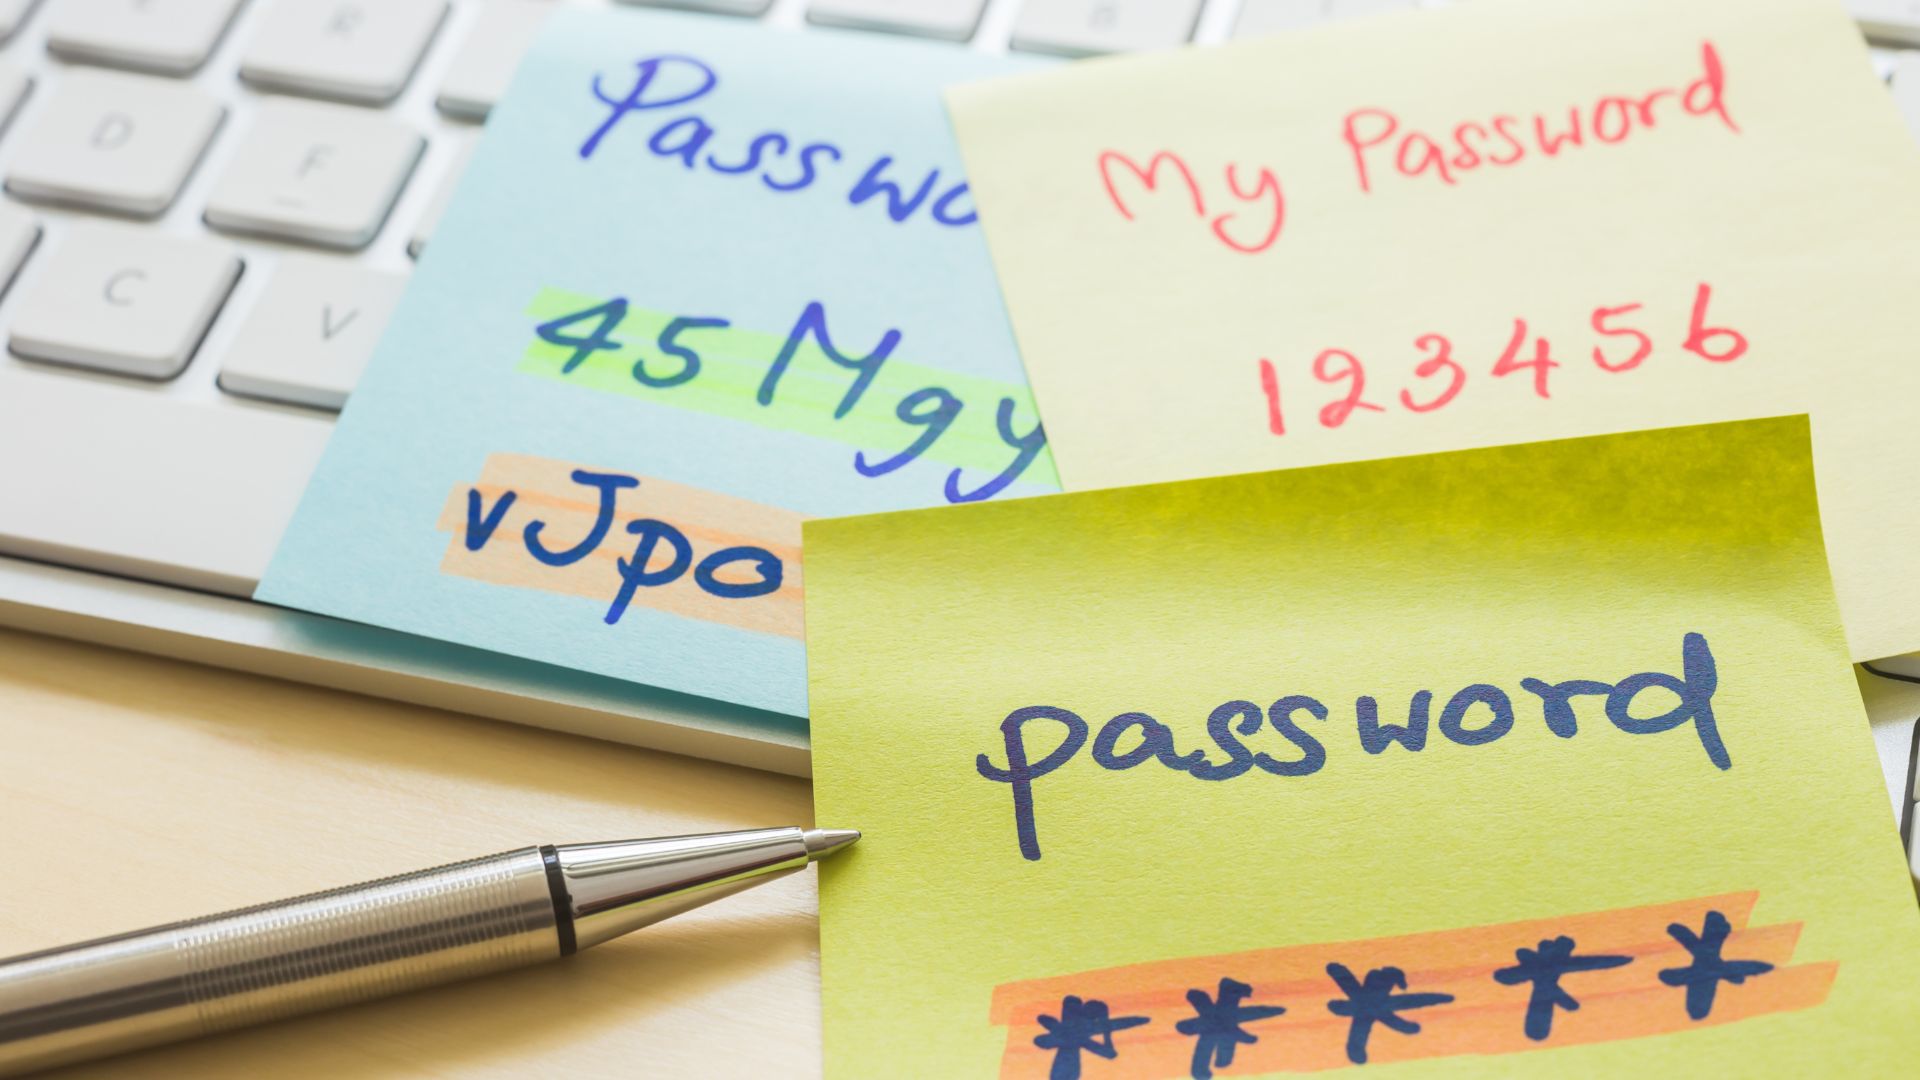 Passwo
45Mgy
vJpo
My Password
123456
password
*****
R
D
F
C
V